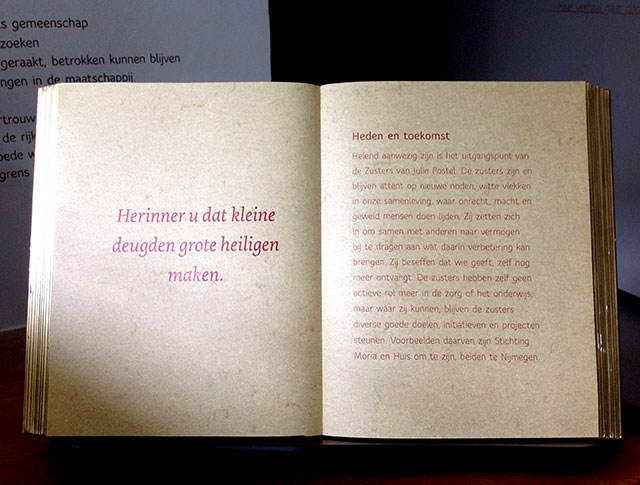 s gemeenschap
zoeken
geraakt, betrokken kunnen blijven
ngen in de maatschappij.
rtrouw
de rijk
oede w
grens
Herinner u dat kleine
deugden grote heiligen
maken.
Heden en toekomst
Helend aanwezig zijn is het uitgangspunt van
de Zusters van Julie Postel. De zusters zijn en
blijven attent op nieuwe noden, witte vlekken
in onze samenleving, waar onrecht, macht en
geweld mensen doen lijden. Zij zetten zich
in om samen met anderen naar vermogen
bij te dragen aan wat daarin verbetering kan
brengen. Zij beseffen dat wie geeft, zelf nog
meer ontvangt. De zusters hebben zelf geen
actieve rol meer in de zorg of het onderwijs,
maar waar zij kunnen, blijven de zusters
diverse goede doelen, initiatieven en projecten
steunen. Voorbeelden daarvan zijn Stichting
Moria en Huis om te zijn, beiden te Nijmegen.